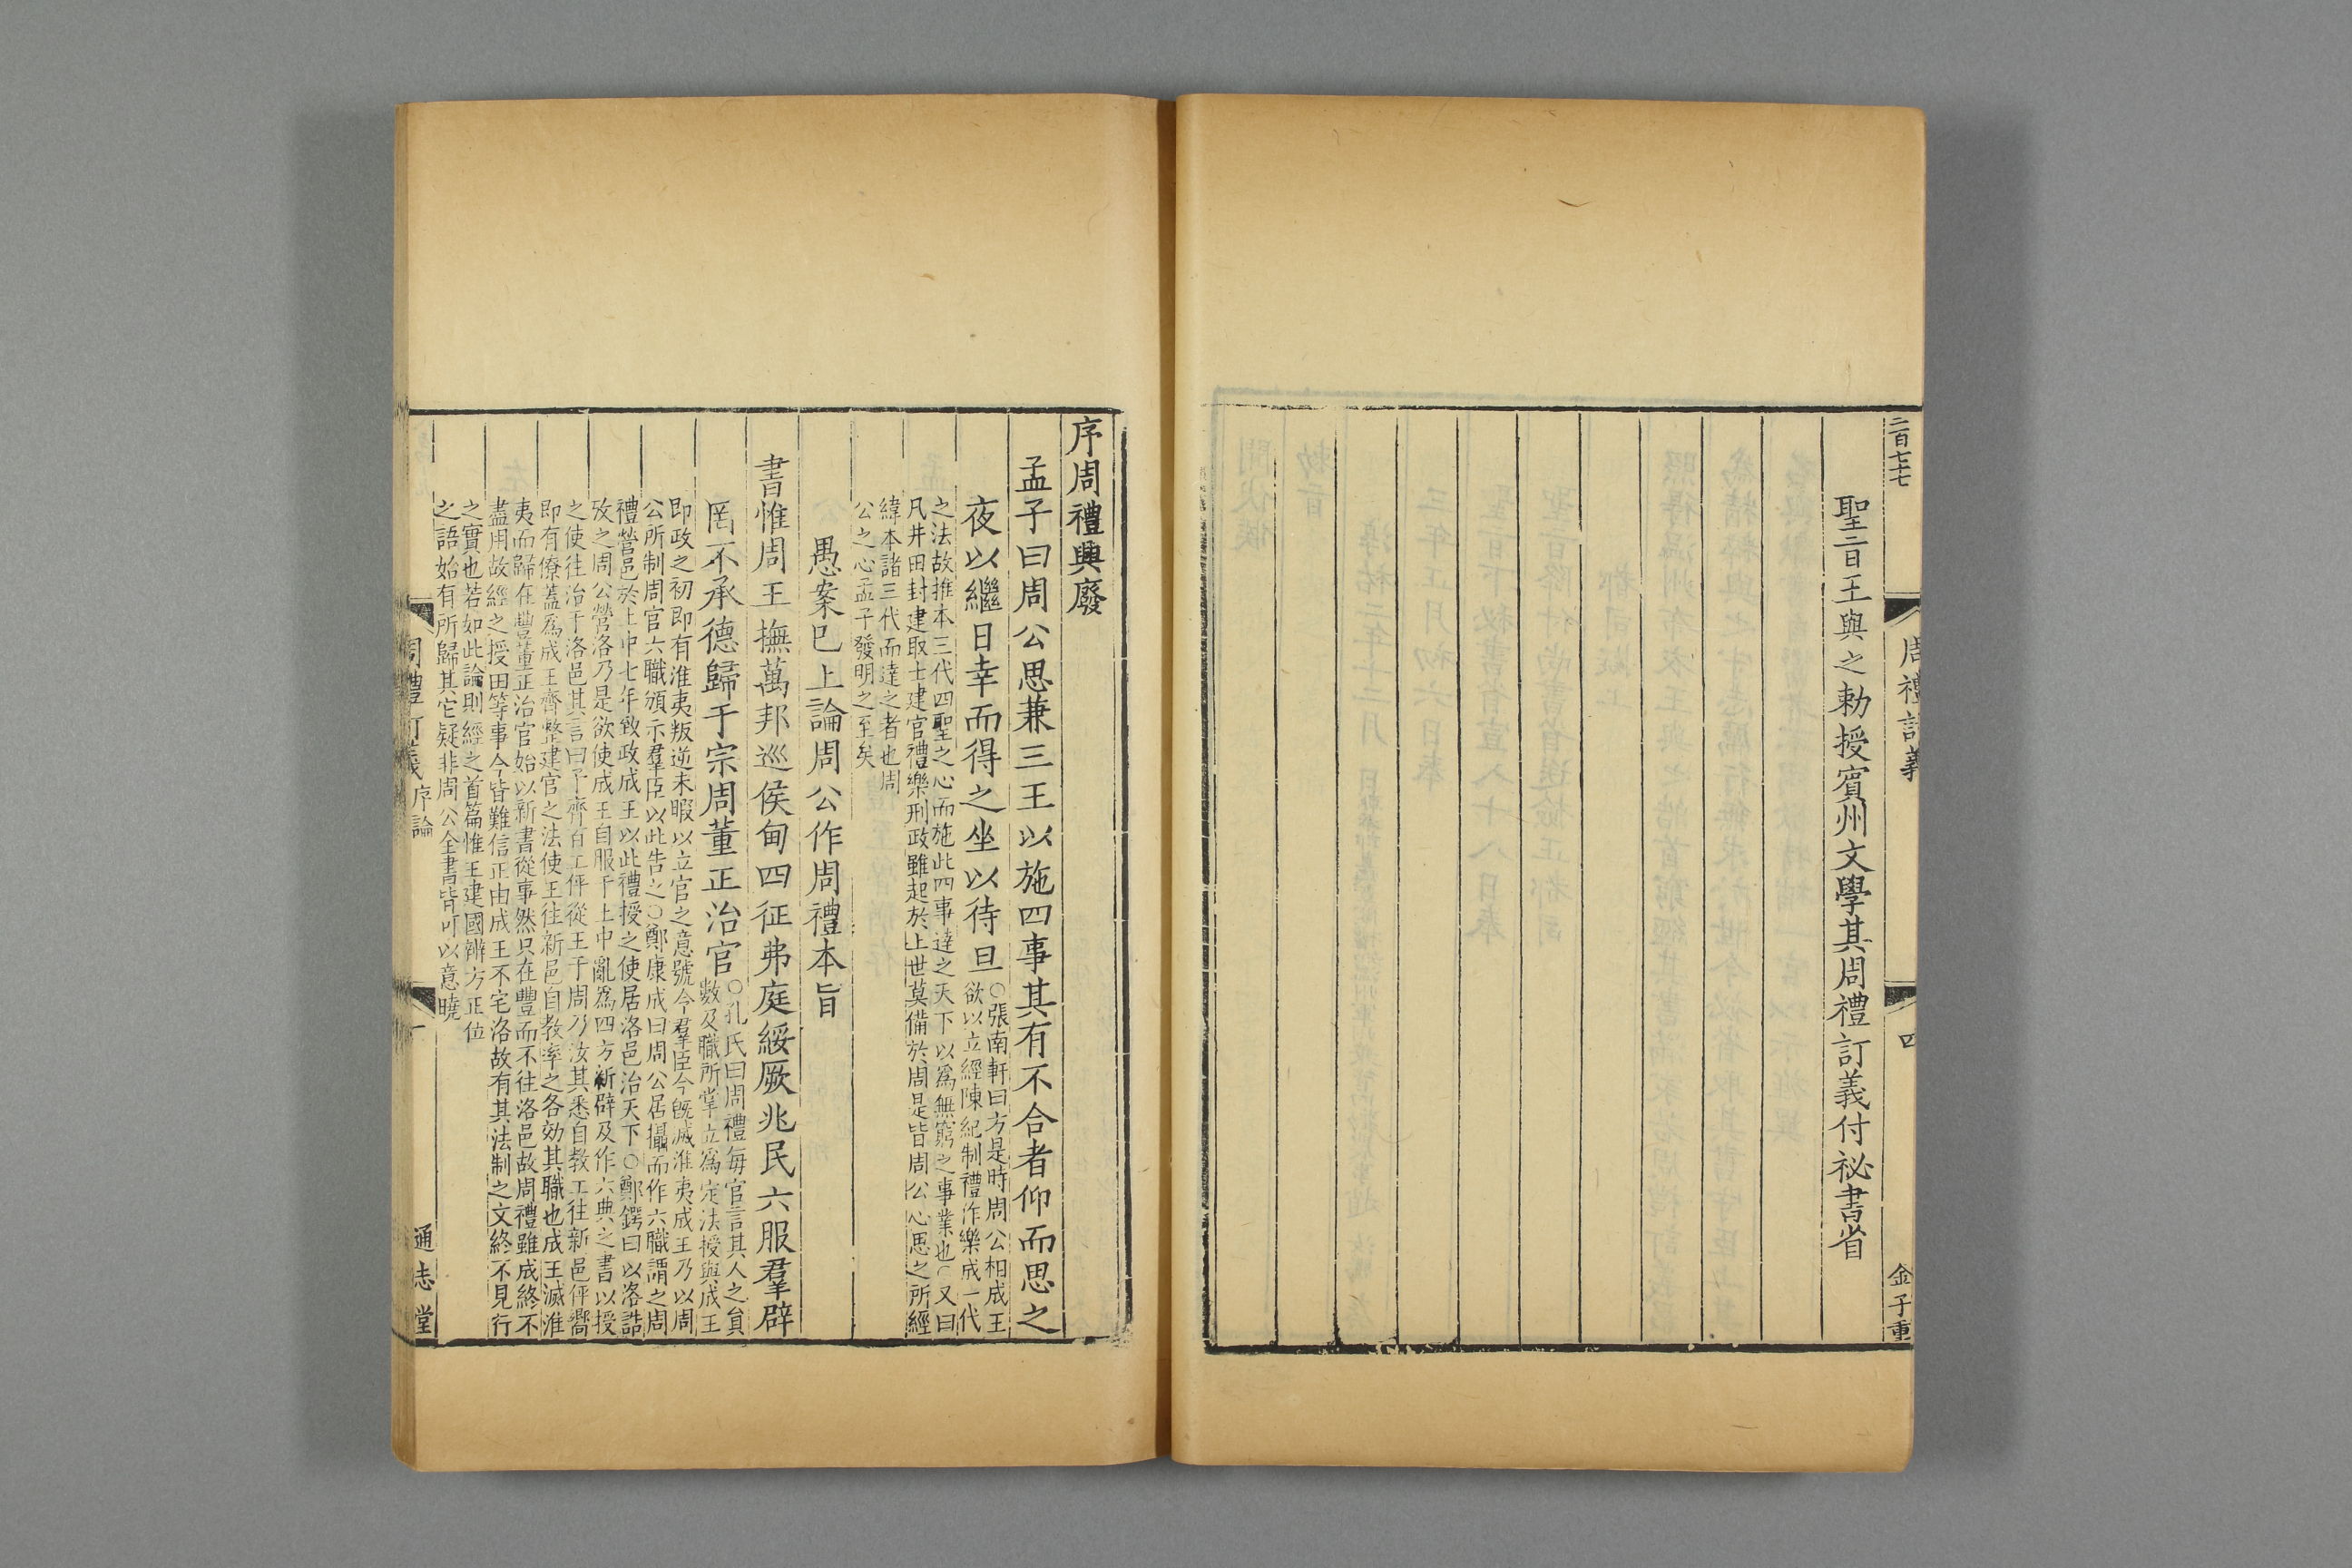 二百七十七
周禮訂義
四
金子重
聖旨王與之勅授賓州文學其周禮訂義付祕書省
序周禮興廢
孟子曰周公思兼三王以施四事其有不合者仰而思之
夜以繼日幸而得之坐以待旦
○張南軒曰方是時周公相成王
欲以立經陳紀制禮作樂成一代
之法故推本三代四聖之心而施此四事達之天下以爲無窮之事業也○又曰
凡井田封建取士建官禮樂刑政雖起於上世莫備於周是皆周公心思之所經
緯本諸三代而達之者也周
公之心孟子發明之至矣
愚案已上論周公作周禮本旨
書惟周王撫萬邦巡侯甸四征弗庭綏厥兆民六服羣辟
罔不承德歸于宗周董正治官
○孔氏曰周禮每官言其人之員
數及職所掌立爲定法授與成王
即政之初即有淮夷叛逆未暇以立官之意號令羣臣今旣滅淮夷成王乃以周
公所制周官六職頒示羣臣以此告之○鄭康成曰周公居攝而作六職謂之周
禮營邑於土中七年致政成王以此禮授之使居洛邑治天下○鄭鍔曰以洛誥
攷之周公營洛乃是欲使成王自服于土中亂爲四方新辟及作六典之書以授
之使往治于洛邑其言曰予齊百工伻從王于周乃汝其悉自教工往新邑伻嚮
即有僚蓋爲成王齊整建官之法使王往新邑自教率之各効其職也成王滅淮
夷而歸在豐董正治官始以新書從事然只在豐而不往洛邑故周禮雖成終不
盡用故經之授田等事今皆難信正由成王不宅洛故有其法制之文終不見行
之實也若如此論則經之首篇惟王建國辨方正位
之語始有所歸其它疑非周公全書皆可以意曉
周禮訂義序論
一
通志堂